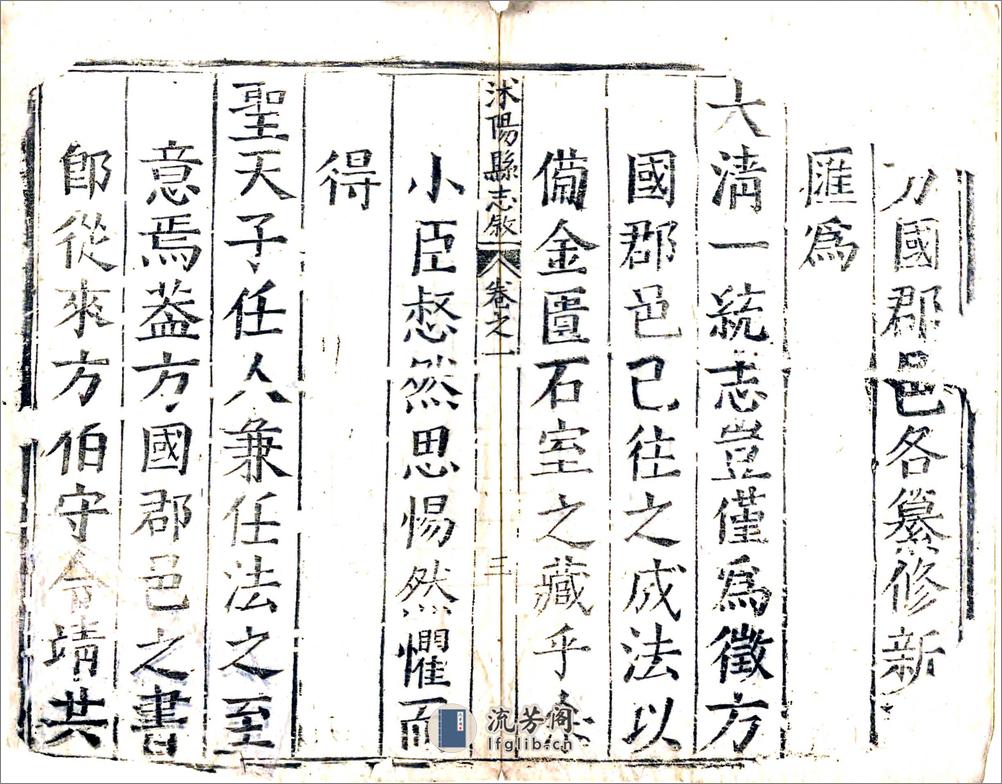 方國郡邑各纂修新
匯爲
大清一統志豈僅爲徵方
國郡邑已往之成法以
備金匱石室之藏乎
沭陽縣志敘 卷之一 三
小臣惄然思惕然懼而
得
聖天子任人兼任法之至
意焉葢方國郡邑之書
卽從來方伯守令靖共
流芳阁
lfglib.cn